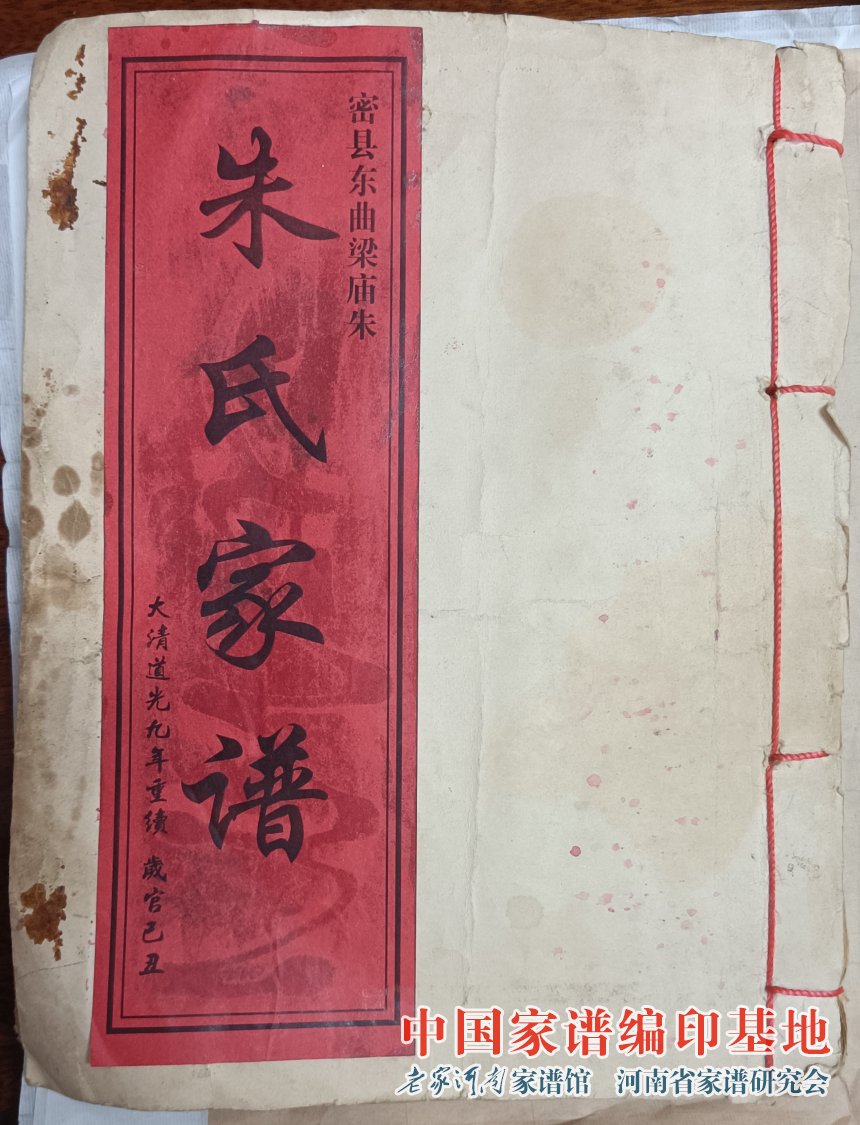 密县东曲梁庙朱
朱氏家谱
大清道光九年重續 歲官己丑
中国家谱编印基地
老家河南家谱馆 河南省家谱研究会